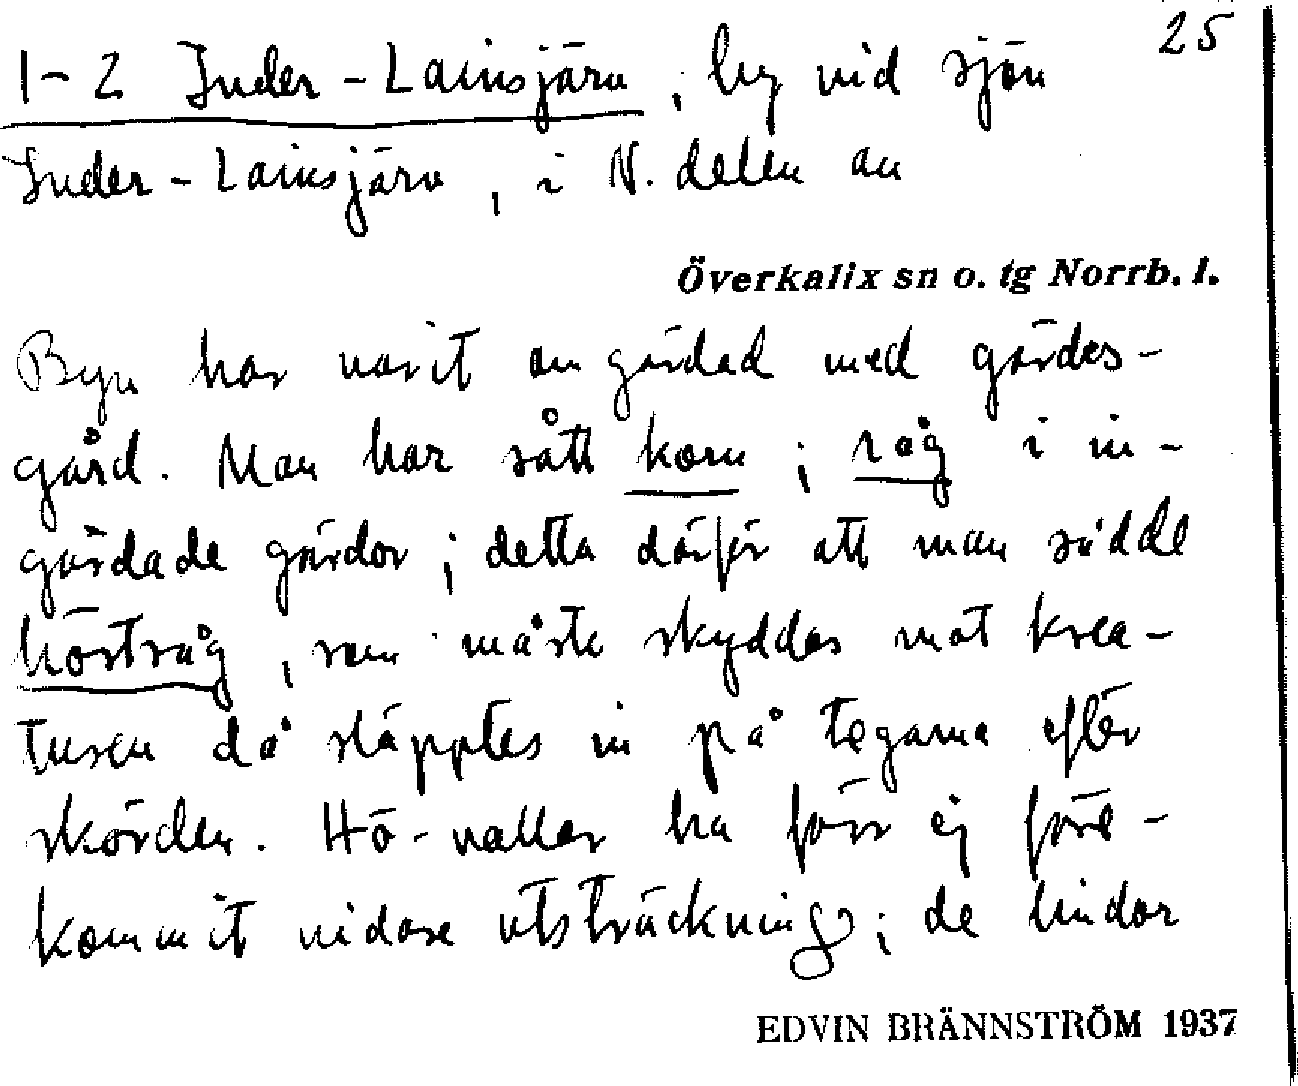 25
1-2 Inder-Lainsjärv, by vid sjön
Inder-Lainsjärv, i N. delen av
Överkalix sn o. tg Norrb. l.
Byn har varit omgärdad med gärdes-
gård. Man har sått korn; råg i in-
gärdade gärdor; detta därför att man sådde
höstråg, som måste skyddas mot krea-
turen då släpptes in på tegarna efter
skörden. Hö-vallar ha förr ej före-
kommit vidare utsträckning; de lindor
EDVIN BRÄNNSTRÖM 1937